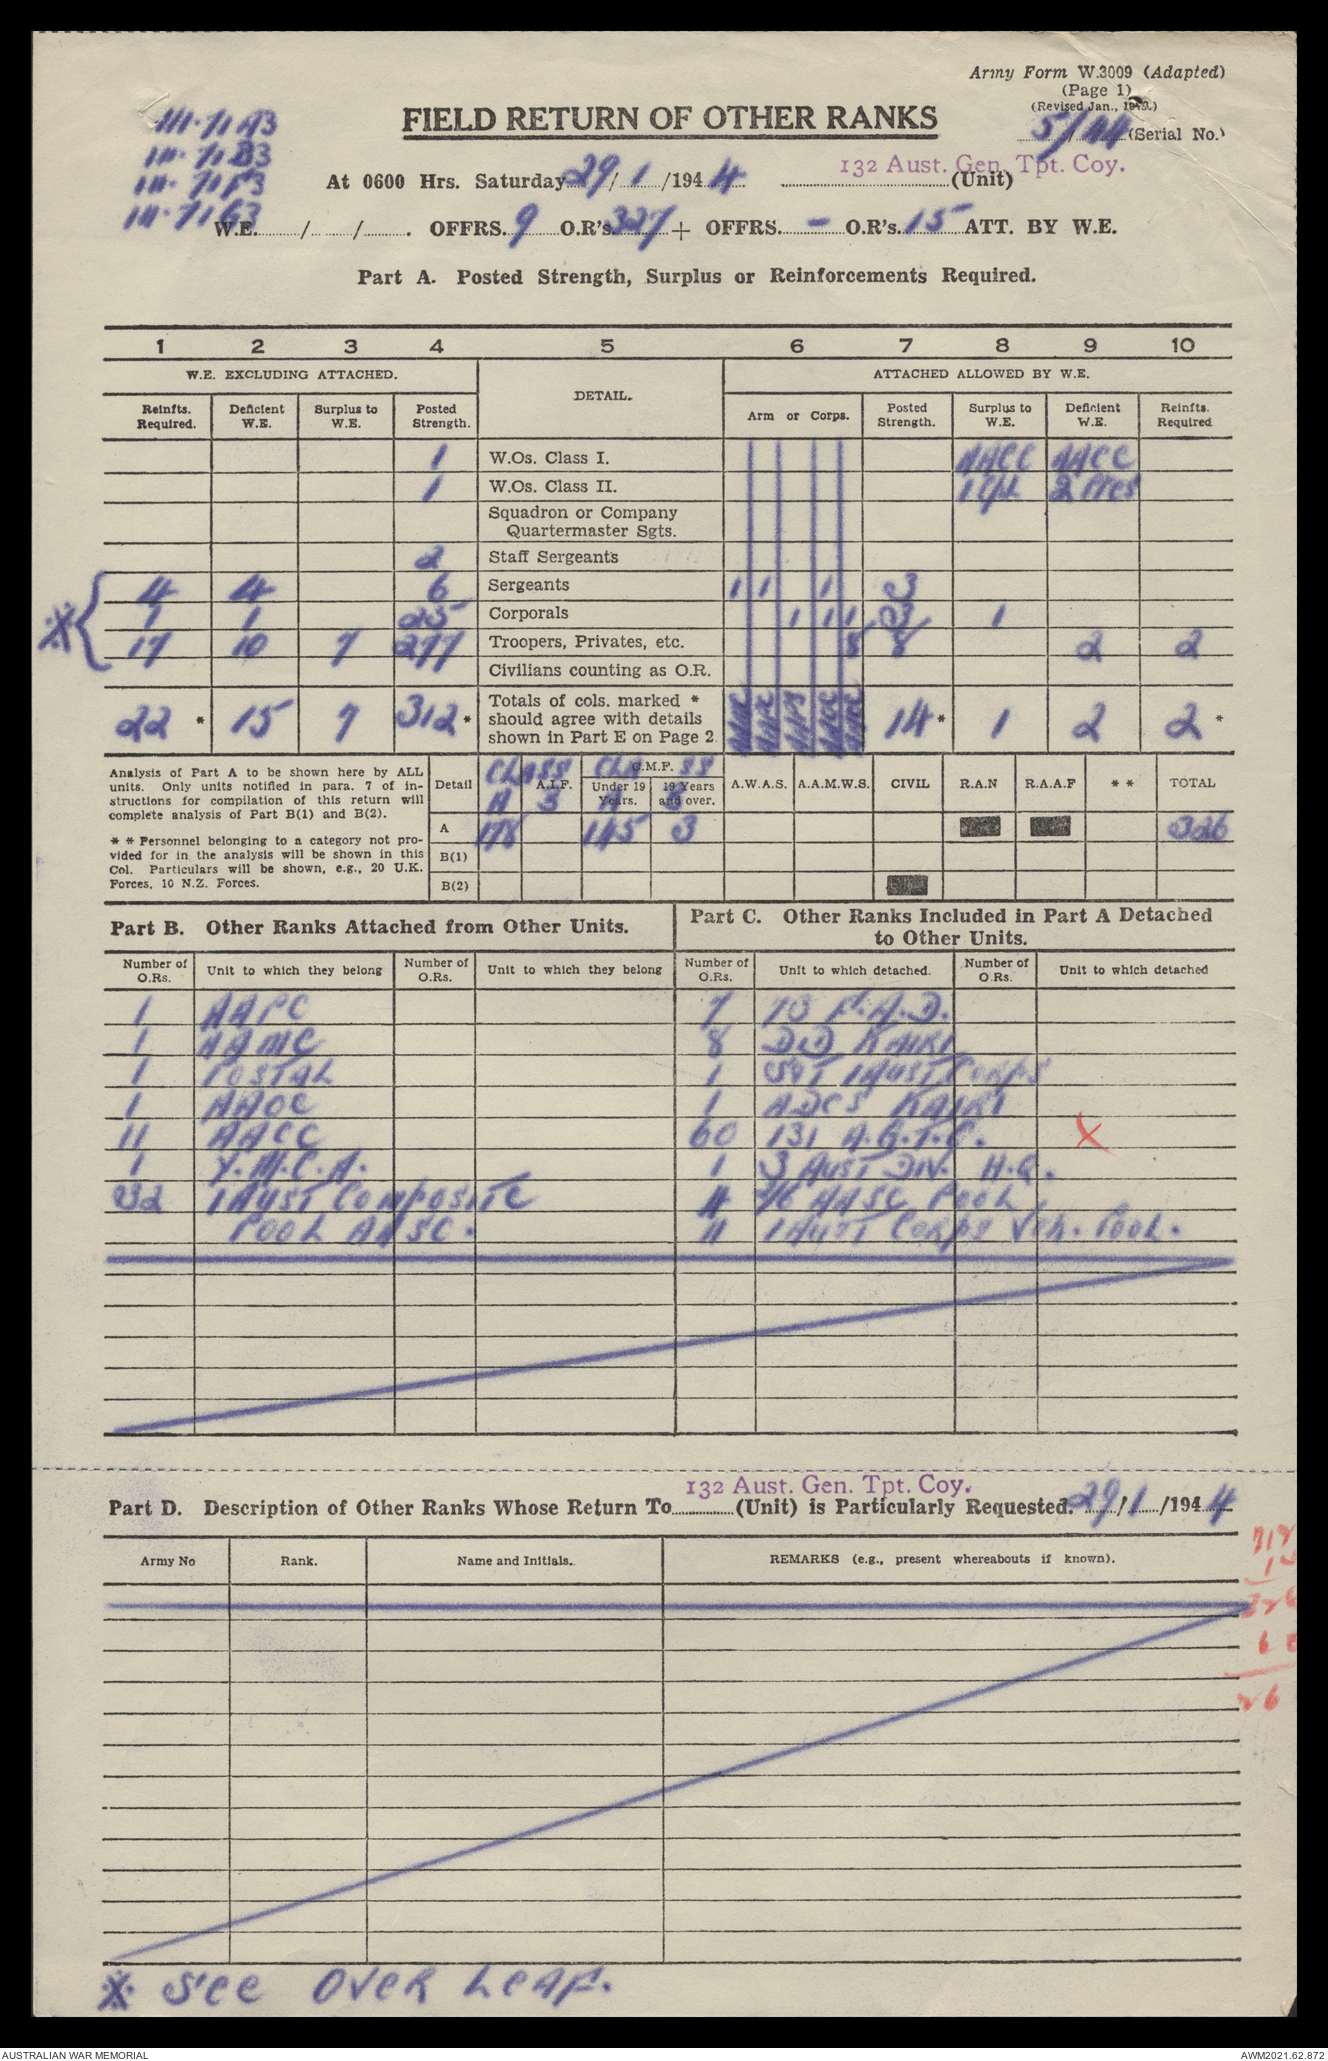 Army Form W.3009 (Adapted)
(Page 1)
(Revised Jan., 1943.)
111·71A3
111·71B3
111·71F3
111·71G3
FIELD RETURN OF OTHER RANKS
5/44 (Serial No.)
At 0600 Hrs. Saturday 29/1/1944 132 Aust. Gen. Tpt. Coy. (Unit)
W.E. / / . OFFRS. 9 O.R's. 327 + OFFRS. - O.R's. 15 ATT. BY W.E.
Part A. Posted Strength, Surplus or Reinforcements Required.
1 2 3 4 5 6 7 8 9 10
W.E. EXCLUDING ATTACHED. DETAIL. ATTACHED ALLOWED BY W.E.
Reinfts. Required. Deficient W.E. Surplus to W.E. Posted Strength. Arm or Corps. Posted Strength. Surplus to W.E. Deficient W.E. Reinfts. Required
1 W.Os. Class I. AACC AACC
1 W.Os. Class II. 1 Cpl 2 Ptes
Squadron or Company
Quartermaster Sgts.
2 Staff Sergeants
4 4 6 Sergeants 1 1 1 3
1 1 25 Corporals 1 1 1 3 1
※ 17 10 7 277 Troopers, Privates, etc. 8 8 2 2
Civilians counting as O.R.
22 * 15 7 312 * Totals of cols. marked *
should agree with details
shown in Part E on Page 2. 14 * 1 2 2 *
Analysis of Part A to be shown here by ALL
units. Only units notified in para. 7 of in-
structions for compilation of this return will
complete analysis of Part B(1) and B(2).
* * Personnel belonging to a category not pro-
vided for in the analysis will be shown in this
Col. Particulars will be shown, e.g., 20 U.K.
Forces, 10 N.Z. Forces.
CLASS C.M.F. CLASS
Detail A.I.F. Under 19 Years. 19 Years and over. A.W.A.S. A.A.M.W.S. CIVIL R.A.N R.A.A.F * * TOTAL
A B A B
A 178 145 3 326
B(1)
B(2)
Part B. Other Ranks Attached from Other Units.
Part C. Other Ranks Included in Part A Detached
to Other Units.
Number of O.Rs. Unit to which they belong Number of O.Rs. Unit to which they belong Number of O.Rs. Unit to which detached. Number of O.Rs. Unit to which detached
1 AAPC 7 13 F.A.D.
1 AAMC 8 DID KAIRI
1 POSTAL 1 1 AUST CORPS
1 AAOC 1 ADCS KAIRI
11 AACC 60 131 A.G.T.C. X
1 Y.M.C.A. 1 3 AUST DIV. H.Q.
32 1 AUST COMPOSITE 4 2/6 AASC POOL
POOL AASC. 11 1 AUST CORPS VEH. POOL.
132 Aust. Gen. Tpt. Coy.
Part D. Description of Other Ranks Whose Return To (Unit) is Particularly Requested. 29/1/1944
Army No Rank. Name and Initials. REMARKS (e.g., present whereabouts if known).
※ See OVER LEAF.
AUSTRALIAN WAR MEMORIAL
AWM2021.62.872